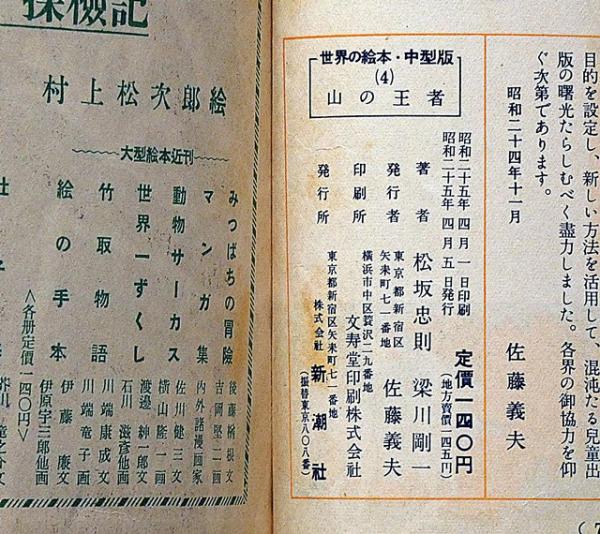 目的を設定し、新しい方法を活用して、混沌たる児童出
版の曙光たらしむべく盡力しました。各界の御協力を仰
ぐ次第であります。
昭和二十四年十一月
佐藤義夫
世界の絵本・中型版
(4)
山の王者
昭和二十五年 四月 一日印刷
昭和二十五年 四月 五日発行
定價一四〇円
(地方賣價一四五円)
著者 松坂忠則 梁川剛一
東京都新宿区
矢来町七一番地
発行者 佐藤義夫
横浜市中区蓑沢二九番地
印刷所 文寿堂印刷株式会社
東京都新宿区矢来町七一番地
発行所 株式会社 新潮社
(振替東京八〇八番)
探檢記
村上松次郎絵
大型絵本近刊
みつばちの冒險 後藤楢根文
吉岡堅二画
マンガ集 内外諸漫画家
動物サーカス 佐川健三文
横山隆一画
世界一ずくし 渡邊紳一郎文
石川滋彦他画
竹取物語 川端康成文
川端竜子画
絵の手本 伊藤廉文
伊原宇三郎他画
<各册定價一四〇円>